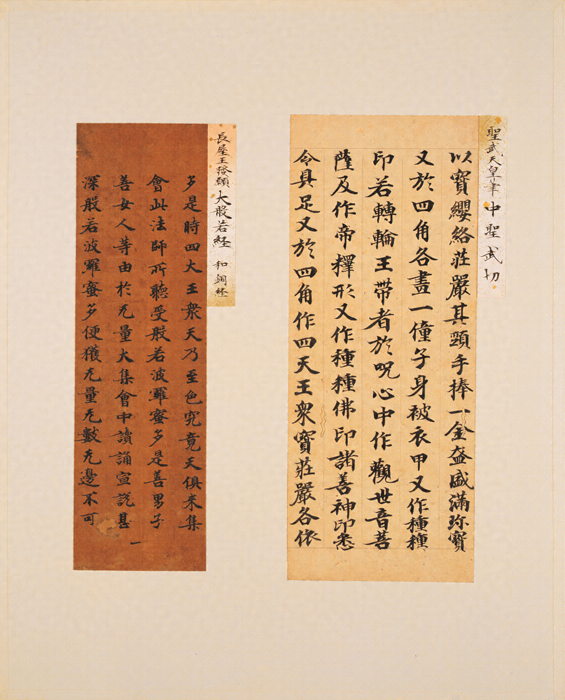 聖武天皇筆 中聖武切
以寶纓絡莊嚴其頸手捧一金盤盛滿珎寶
又於四角各畫一僮子身被衣甲又作種種
印若轉輪王帶者於呪心中作觀世音菩
薩及作帝釋形又作種種佛印諸善神印悉
令具足又於四角作四天王衆寶莊嚴各依
長屋王發願 大般若経 和銅経
多是時四大王衆天乃至色究竟天俱來集
會此法師所聽受般若波羅蜜多是善男子
善女人等由於无量大集會中讀誦宣說甚
深般若波羅蜜多便獲无量无數无邊不可
一